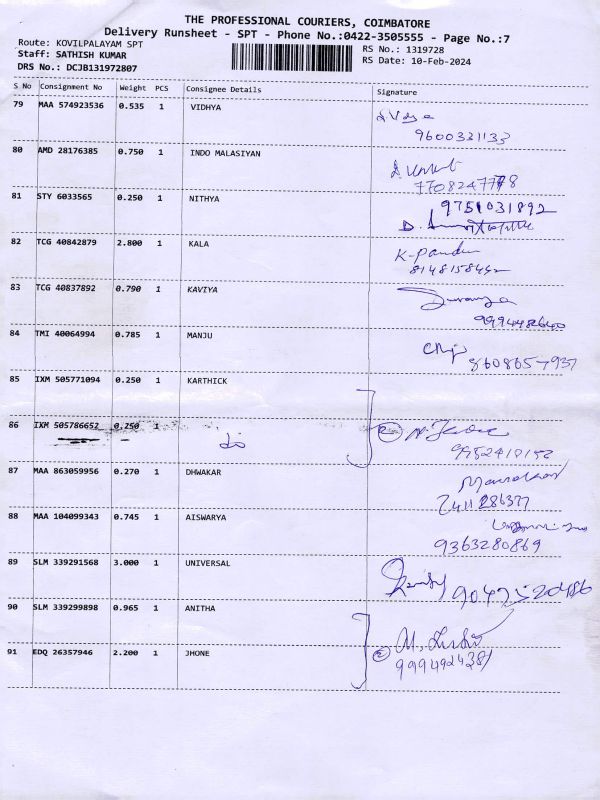 THE PROFESSIONAL COURIERS, COIMBATORE
Delivery Runsheet - SPT - Phone No.:0422-3505555 - Page No.:7
Route: KOVILPALAYAM SPT
RS No.: 1319728
Staff: SATHISH KUMAR
RS Date: 10-Feb-2024
DRS No.: DCJB131972807
S No Consignment No Weight PCS Consignee Details Signature
79 MAA 574923536 0.535 1 VIDHYA
9600331133
80 AMD 28176385 0.750 1 INDO MALASIYAN
81 STY 6033565 0.250 1 NITHYA 9751031892
82 TCG 40842879 2.800 1 KALA
8148158492
83 TCG 40837892 0.790 1 KAVIYA
84 TMI 40064994 0.785 1 MANJU
8608657937
85 IXM 505771094 0.250 1 KARTHICK
86 IXM 505786652 0.250 1 do
9952410152
87 MAA 863059956 0.270 1 DHWAKAR
88 MAA 104099343 0.745 1 AISWARYA
9363280869
89 SLM 339291568 3.000 1 UNIVERSAL
9047520486
90 SLM 339299898 0.965 1 ANITHA
91 EDQ 26357946 2.200 1 JHONE
9994924381